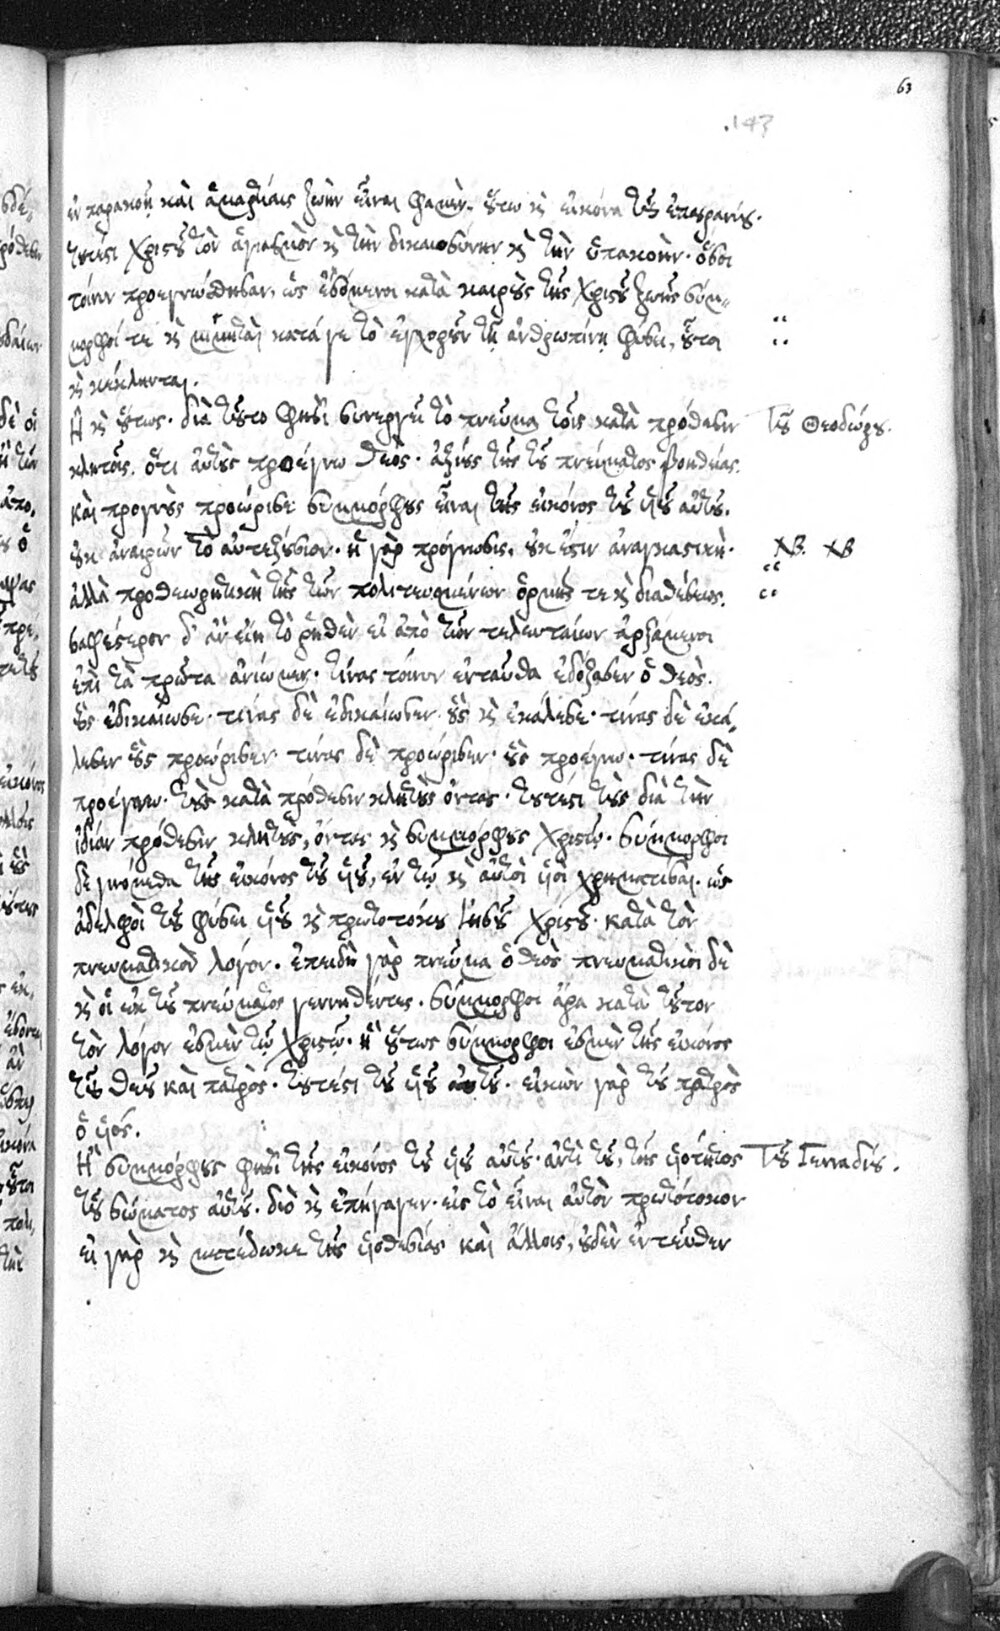 63
.143
ἐν παρακοῇ καὶ ἁμαρτίαις ζωὴν εἶναι φαμὲν. οὕτω κ εἰκόνα τοῦ ἐπουρανίου.
τουτέστι Χριστοῦ τὸν ἁγιασμὸν κ τὴν δικαιοσύνην κ τὴν ὑπακοὴν. ὅσοι
τοίνυν προεγνώσθησαν, ὡς ἐσόμενοι κατὰ καιροὺς τῆς Χριστοῦ ζωῆς σύμ-
μορφοί τε κ μιμηταὶ κατά γε τὸ ἐγχωροῦν τῇ ἀνθρωπίνῃ φύσει, οὗτοι
κ κέκληνται.
Ἢ κ οὕτως. διὰ τοῦτο φησὶ συνεργεῖ τὸ πνεῦμα τοῖς κατὰ πρόθεσιν
Τοῦ Θεοδώρου.
κλητοῖς. ὅτι αὐτοὺς προέγνω θεὸς. ἀξίους τῆς τοῦ πνεύματος βοηθείας.
καὶ προγνοὺς προώρισε συμμόρφους εἶναι τῆς εἰκόνος τοῦ υἱοῦ αὐτοῦ.
οὐκ ἀναιρῶν τὸ αὐτεξούσιον. ἡ γὰρ πρόγνωσις, οὐκ ἔστιν ἀναγκαστικὴ.
ΧΒ. ΧΒ
ἀλλὰ προθεωρητικὴ τῆς τῶν πολιτευομένων ὁρμῆς τε κ διαθέσεως.
σαφέστερον δ' ἂν εἴη τὸ ῥηθὲν εἰ ἀπὸ τῶν τελευταίων ἀρξάμενοι
ἐπὶ τὰ πρῶτα ἀνίωμεν. τίνας τοίνυν ἐνταῦθα ἐδόξασεν ὁ θεὸς.
οὓς ἐδικαίωσε. τίνας δὲ ἐδικαίωσεν. οὓς κ ἐκάλεσε. τίνας δὲ ἐκά-
λεσεν οὓς προώρισεν. τίνας δὲ προώρισεν. οὓς προέγνω. τίνας δὲ
προέγνω. τοὺς κατὰ πρόθεσιν κλητοὺς ὄντας. τουτέστι τοὺς διὰ τὴν
ἰδίαν πρόθεσιν κλητοὺς, ὄντας κ συμμόρφους Χριστῷ. σύμμορφοι
δὲ γινόμεθα τῆς εἰκόνος τοῦ υἱοῦ, ἐν τῷ κ αὐτοὶ υἱοὶ χρηματίσαι. ὡς
ἀδελφοὶ τοῦ φύσει υἱοῦ κ πρωτοτόκου Ἰησοῦ Χριστοῦ. κατὰ τὸν
πνευματικὸν λόγον. ἐπειδὴ γὰρ πνεῦμα ὁ θεὸς πνευματικοὶ δὲ
κ οἱ ἐκ τοῦ πνεύματος γεννηθέντες. σύμμορφοι ἄρα κατὰ τοῦτον
τὸν λόγον ἐσμὲν τῷ Χριστῷ. ἢ οὕτως σύμμορφοι ἐσμὲν τῆς εἰκόνος
τοῦ θεοῦ καὶ πατρὸς. τουτέστι τοῦ υἱοῦ αὐτοῦ. εἰκὼν γὰρ τοῦ πατρὸς
ὁ υἱός.
Ἢ συμμόρφους φησὶ τῆς εἰκόνος τοῦ υἱοῦ αὐτοῦ. ἀντὶ τοῦ, τῆς υἱότητος
Τοῦ Γενναδίου.
τοῦ σώματος αὐτοῦ. διὸ κ ἐπήγαγεν. εἰς τὸ εἶναι αὐτὸν πρωτότοκον
εἰ γὰρ κ μετέδωκε τῆς υἱοθεσίας καὶ ἄλλοις, οὐδὲν ἐντεῦθεν